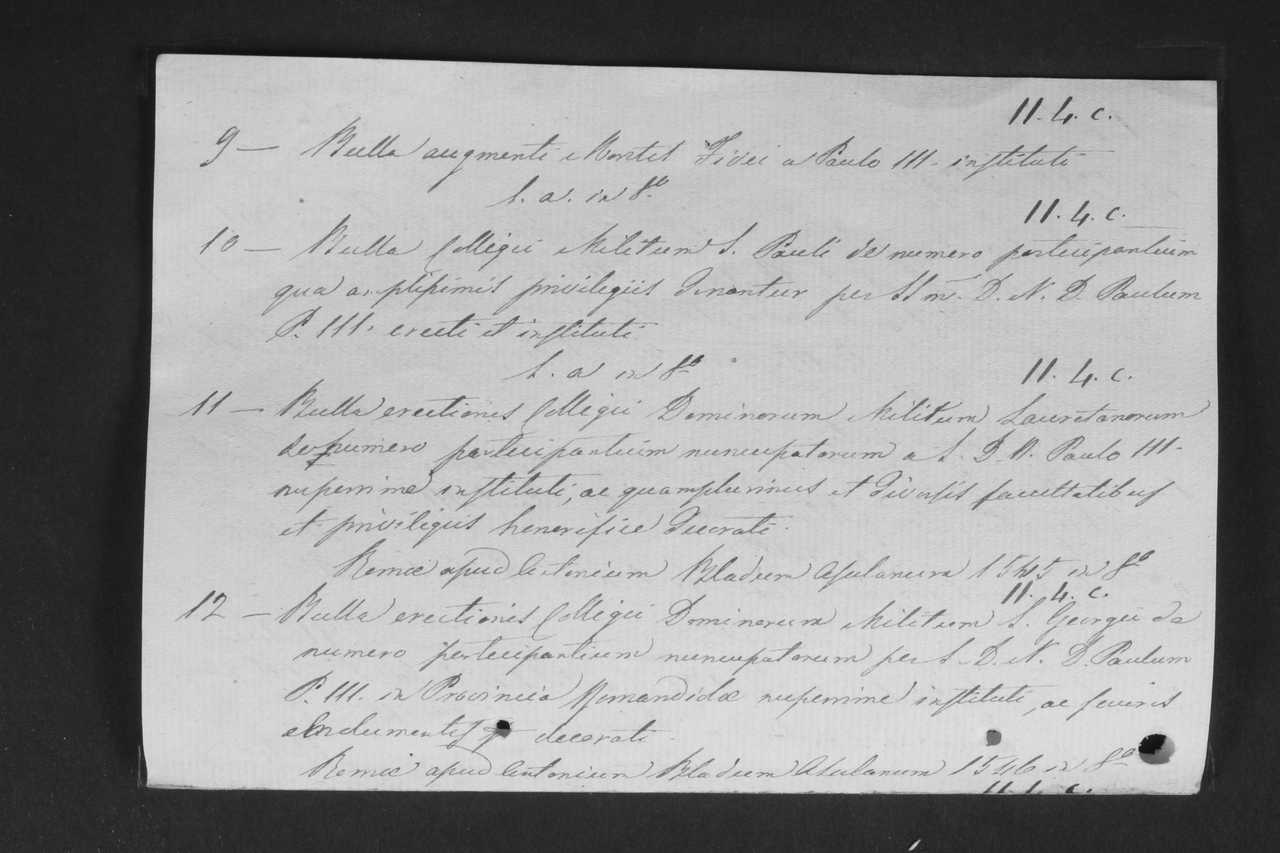 11. 4. c.
9 — Bulla augmenti Montis Fidei a Paulo III. instituti
s. a. in 8.º
11. 4. c.
10 — Bulla Collegii Militum S. Pauli de numero participantium
qua amplissimis privilegiis donantur per SSm. D. N. D. Paulum
P. III. erecti et instituti
s. a in 8º
11. 4. c.
11 — Bulla erectionis Collegii Dominorum Militum Lauretanorum
de numero participantium nuncupatorum a S. D. N. Paulo III.
nuperrime instituti, ac quamplurimis et diversis facultatibus
et privilegiis honorifice decorati.
Romæ apud Antonium Bladum Asulanum 1545 in 8º
11. 4. c.
12 — Bulla erectionis Collegii Dominorum Militum S. Georgii de
numero participantium nuncupatorum per S. D. N. D. Paulum
P. III. in Provincia Romandiolæ nuperrime instituti, ac
decorati.
Romæ apud Antonium Bladum Asulanum 1546 in 8º
11. 4. c.